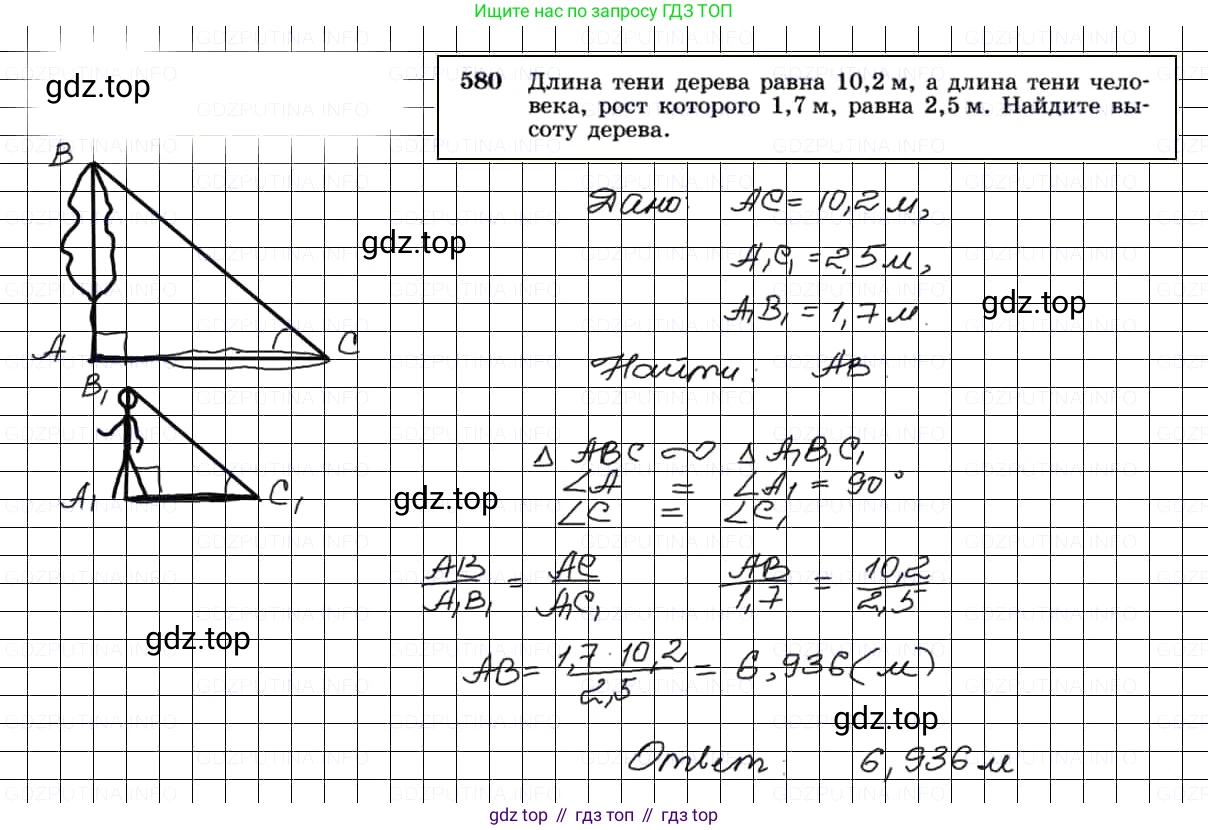 Ищите нас по запросу ГДЗ ТОП
580 Длина тени дерева равна 10,2 м, а длина тени чело-
века, рост которого 1,7 м, равна 2,5 м. Найдите вы-
соту дерева.
gdz.top
B
Дано: AC = 10,2 м,
gdz.top
A₁C₁ = 2,5 м,
gdz.top
A₁B₁ = 1,7 м.
A C
Найти: AB.
B₁
△ ABC ∾ △ A₁B₁C₁
∠A = ∠A₁ = 90°
A₁ C₁
gdz.top
∠C = ∠C₁
AB/A₁B₁ = AC/A₁C₁ AB/1,7 = 10,2/2,5
gdz.top
AB = 1,7 · 10,2/2,5 = 6,936 (м)
gdz.top
Ответ: 6,936 м
gdz.top // гдз.топ // гдз.top